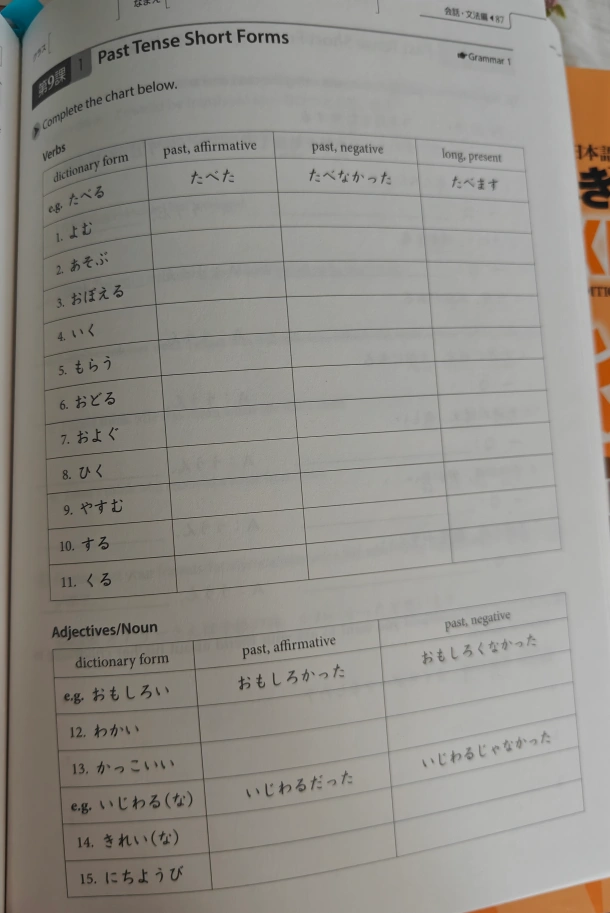 会話・文法編◀87
クラス
なまえ
第9課 1 Past Tense Short Forms
☛Grammar 1
Complete the chart below.
Verbs
dictionary form past, affirmative past, negative long, present
e.g. たべる たべた たべなかった たべます
1. よむ
2. あそぶ
3. おぼえる
4. いく
5. もらう
6. おどる
7. およぐ
8. ひく
9. やすむ
10. する
11. くる
Adjectives/Noun
dictionary form past, affirmative past, negative
e.g. おもしろい おもしろかった おもしろくなかった
12. わかい
13. かっこいい
e.g. いじわる(な) いじわるだった いじわるじゃなかった
14. きれい(な)
15. にちようび
日本語